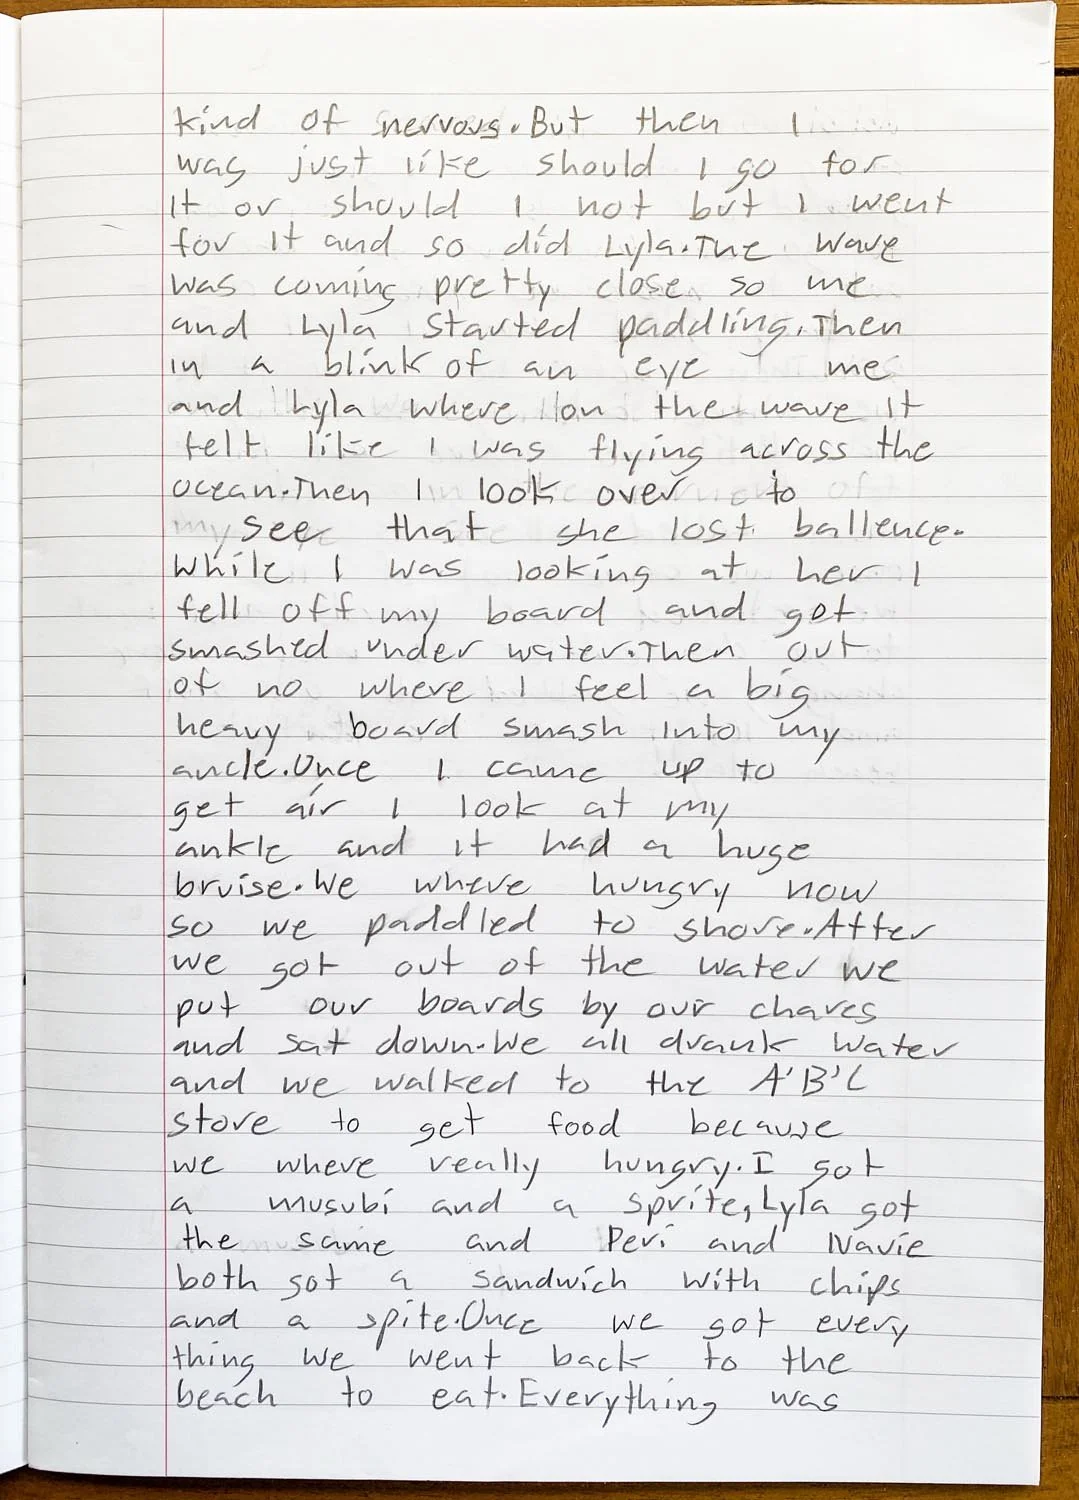 kind of nervous. But then I
was just like should I go for
It or should I not but I went
for It and so did Lyla. The wave
was coming pretty close so me
and Lyla started paddling. Then
in a blink of an eye me
and Lyla where on the wave It
felt like I was flying across the
ocean. Then I look over to
see that she lost ballence.
While I was looking at her I
fell off my board and got
smashed under water. Then out
of no where I feel a big
heavy board smash into my
ancle. Once I came up to
get air I look at my
ankle and it had a huge
bruise. We where hungry now
so we paddled to shore. After
we got out of the water we
put our boards by our chares
and sat down. We all drank water
and we walked to the A'B'C
store to get food because
we where really hungry. I got
a musubi and a sprite, Lyla got
the same and Peri and Navie
both got a sandwich with chips
and a spite. Once we got every
thing we went back to the
beach to eat. Everything was